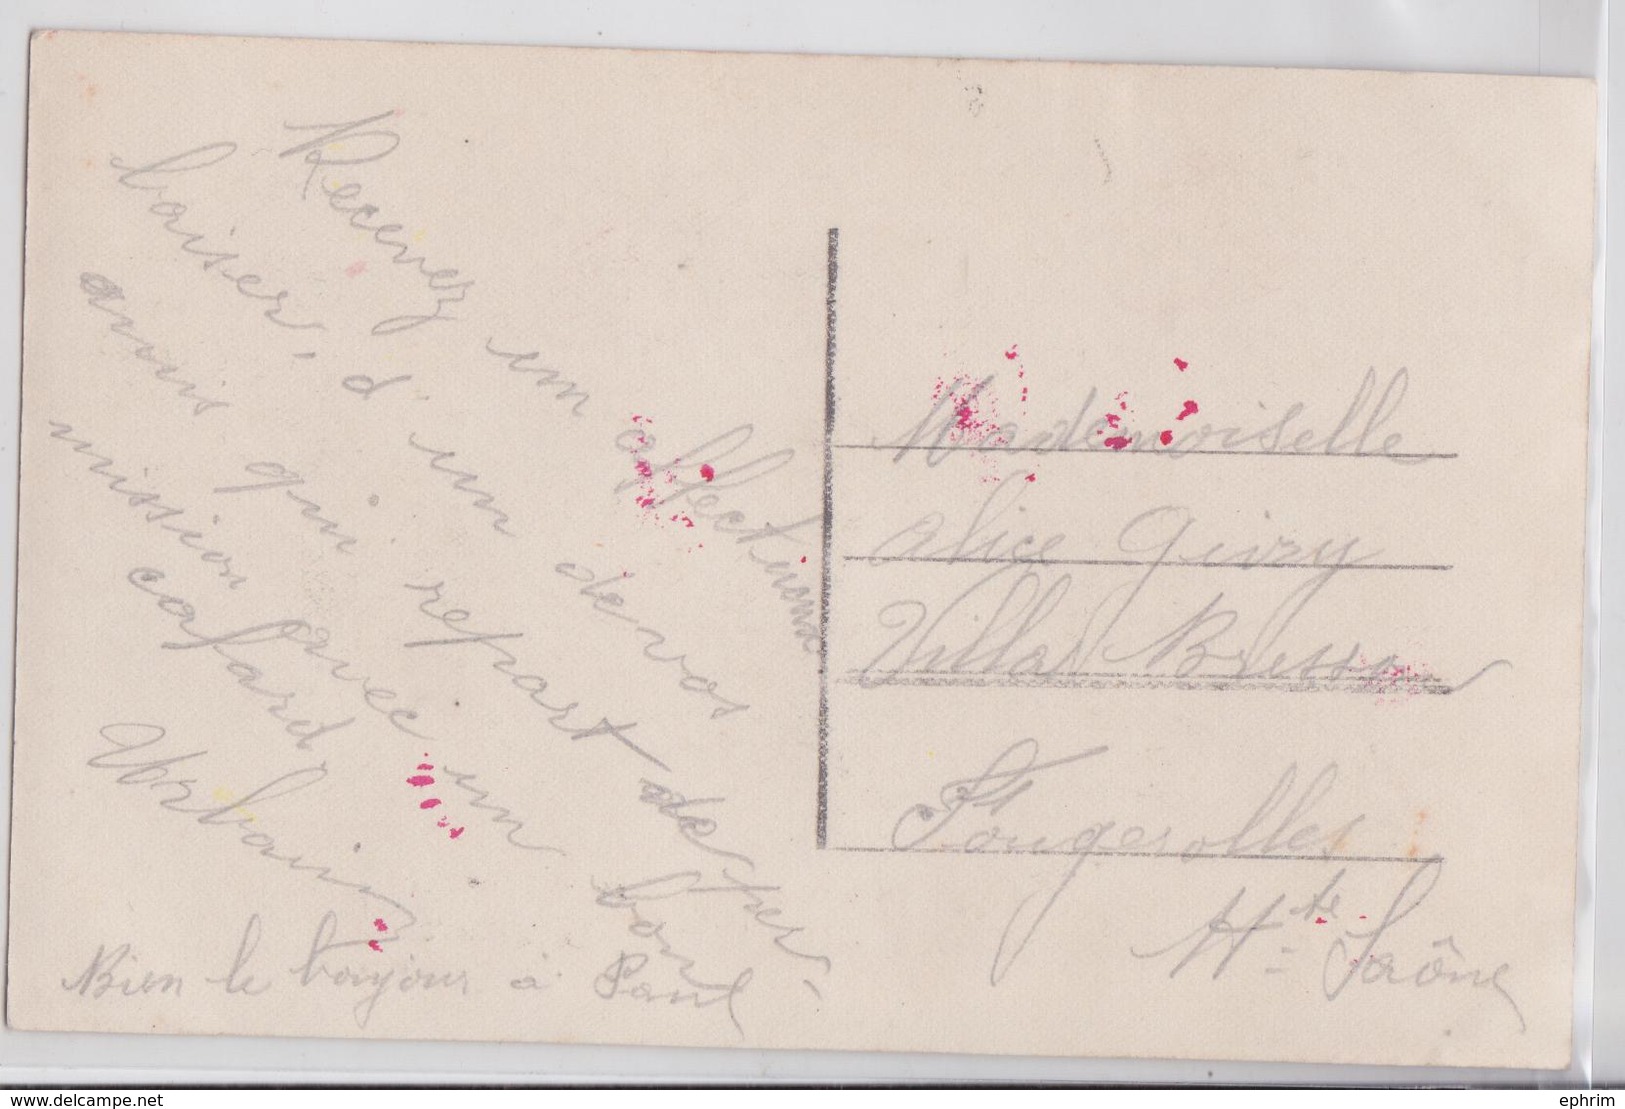 Recevez un affectueux
baiser, d un de vos
amis qui repart de per-
mission avec un bon
cafard
Urbain
Bien le bonjour à Paul
Mademoiselle
Alice Givry
Villa Bresson
Fougerolles
Hte Saône
delcampe.net
ephrim